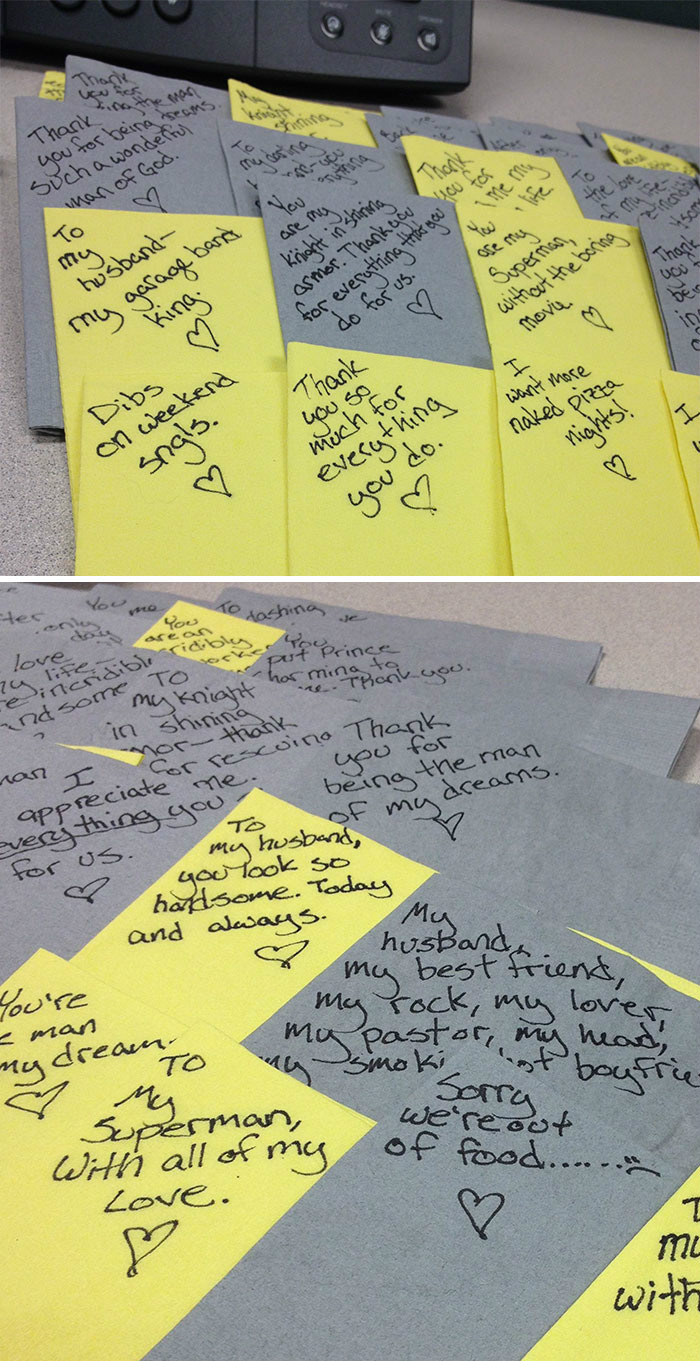 Thank
you for
the man
Thank
you for being
such a wonderful
man of God.
My
knight
shining
To
my
Thank
you for
me my
life
To
the love
of my life-
To
my
husband-
my garage band
king.
You
are my
knight in shining
armor. Thank you
for everything that you
do for us.
You
are my
Superman,
without the boring
movie.
Thank
you
Dibs
on weekend
sngls.
Thank
you so
much for
everything
you do.
I
want more
naked pizza
nights!
I
You
me
only
day
You
are an
To
dashing
You
put Prince
to
Thank you.
love
my life-
incredibl
handsome
To
my knight
in shining
armor- thank
for rescuing
me.
I
appreciate
everything you
for us.
Thank
you for
being the man
of my dreams.
To
my husband,
you look so
handsome. Today
and always.
My
husband,
my best friend,
my rock, my lover,
my pastor, my head,
my smoki
hot boyfrie
You're
man
my dream.
To
My
Superman,
With all of my
Love.
Sorry
we're out
of food......
my
with